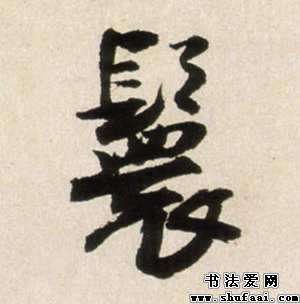 鬟
书法爱网
www.shufaai.com